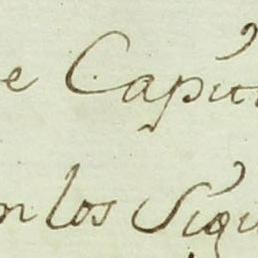 e Capitu
n los Sigu